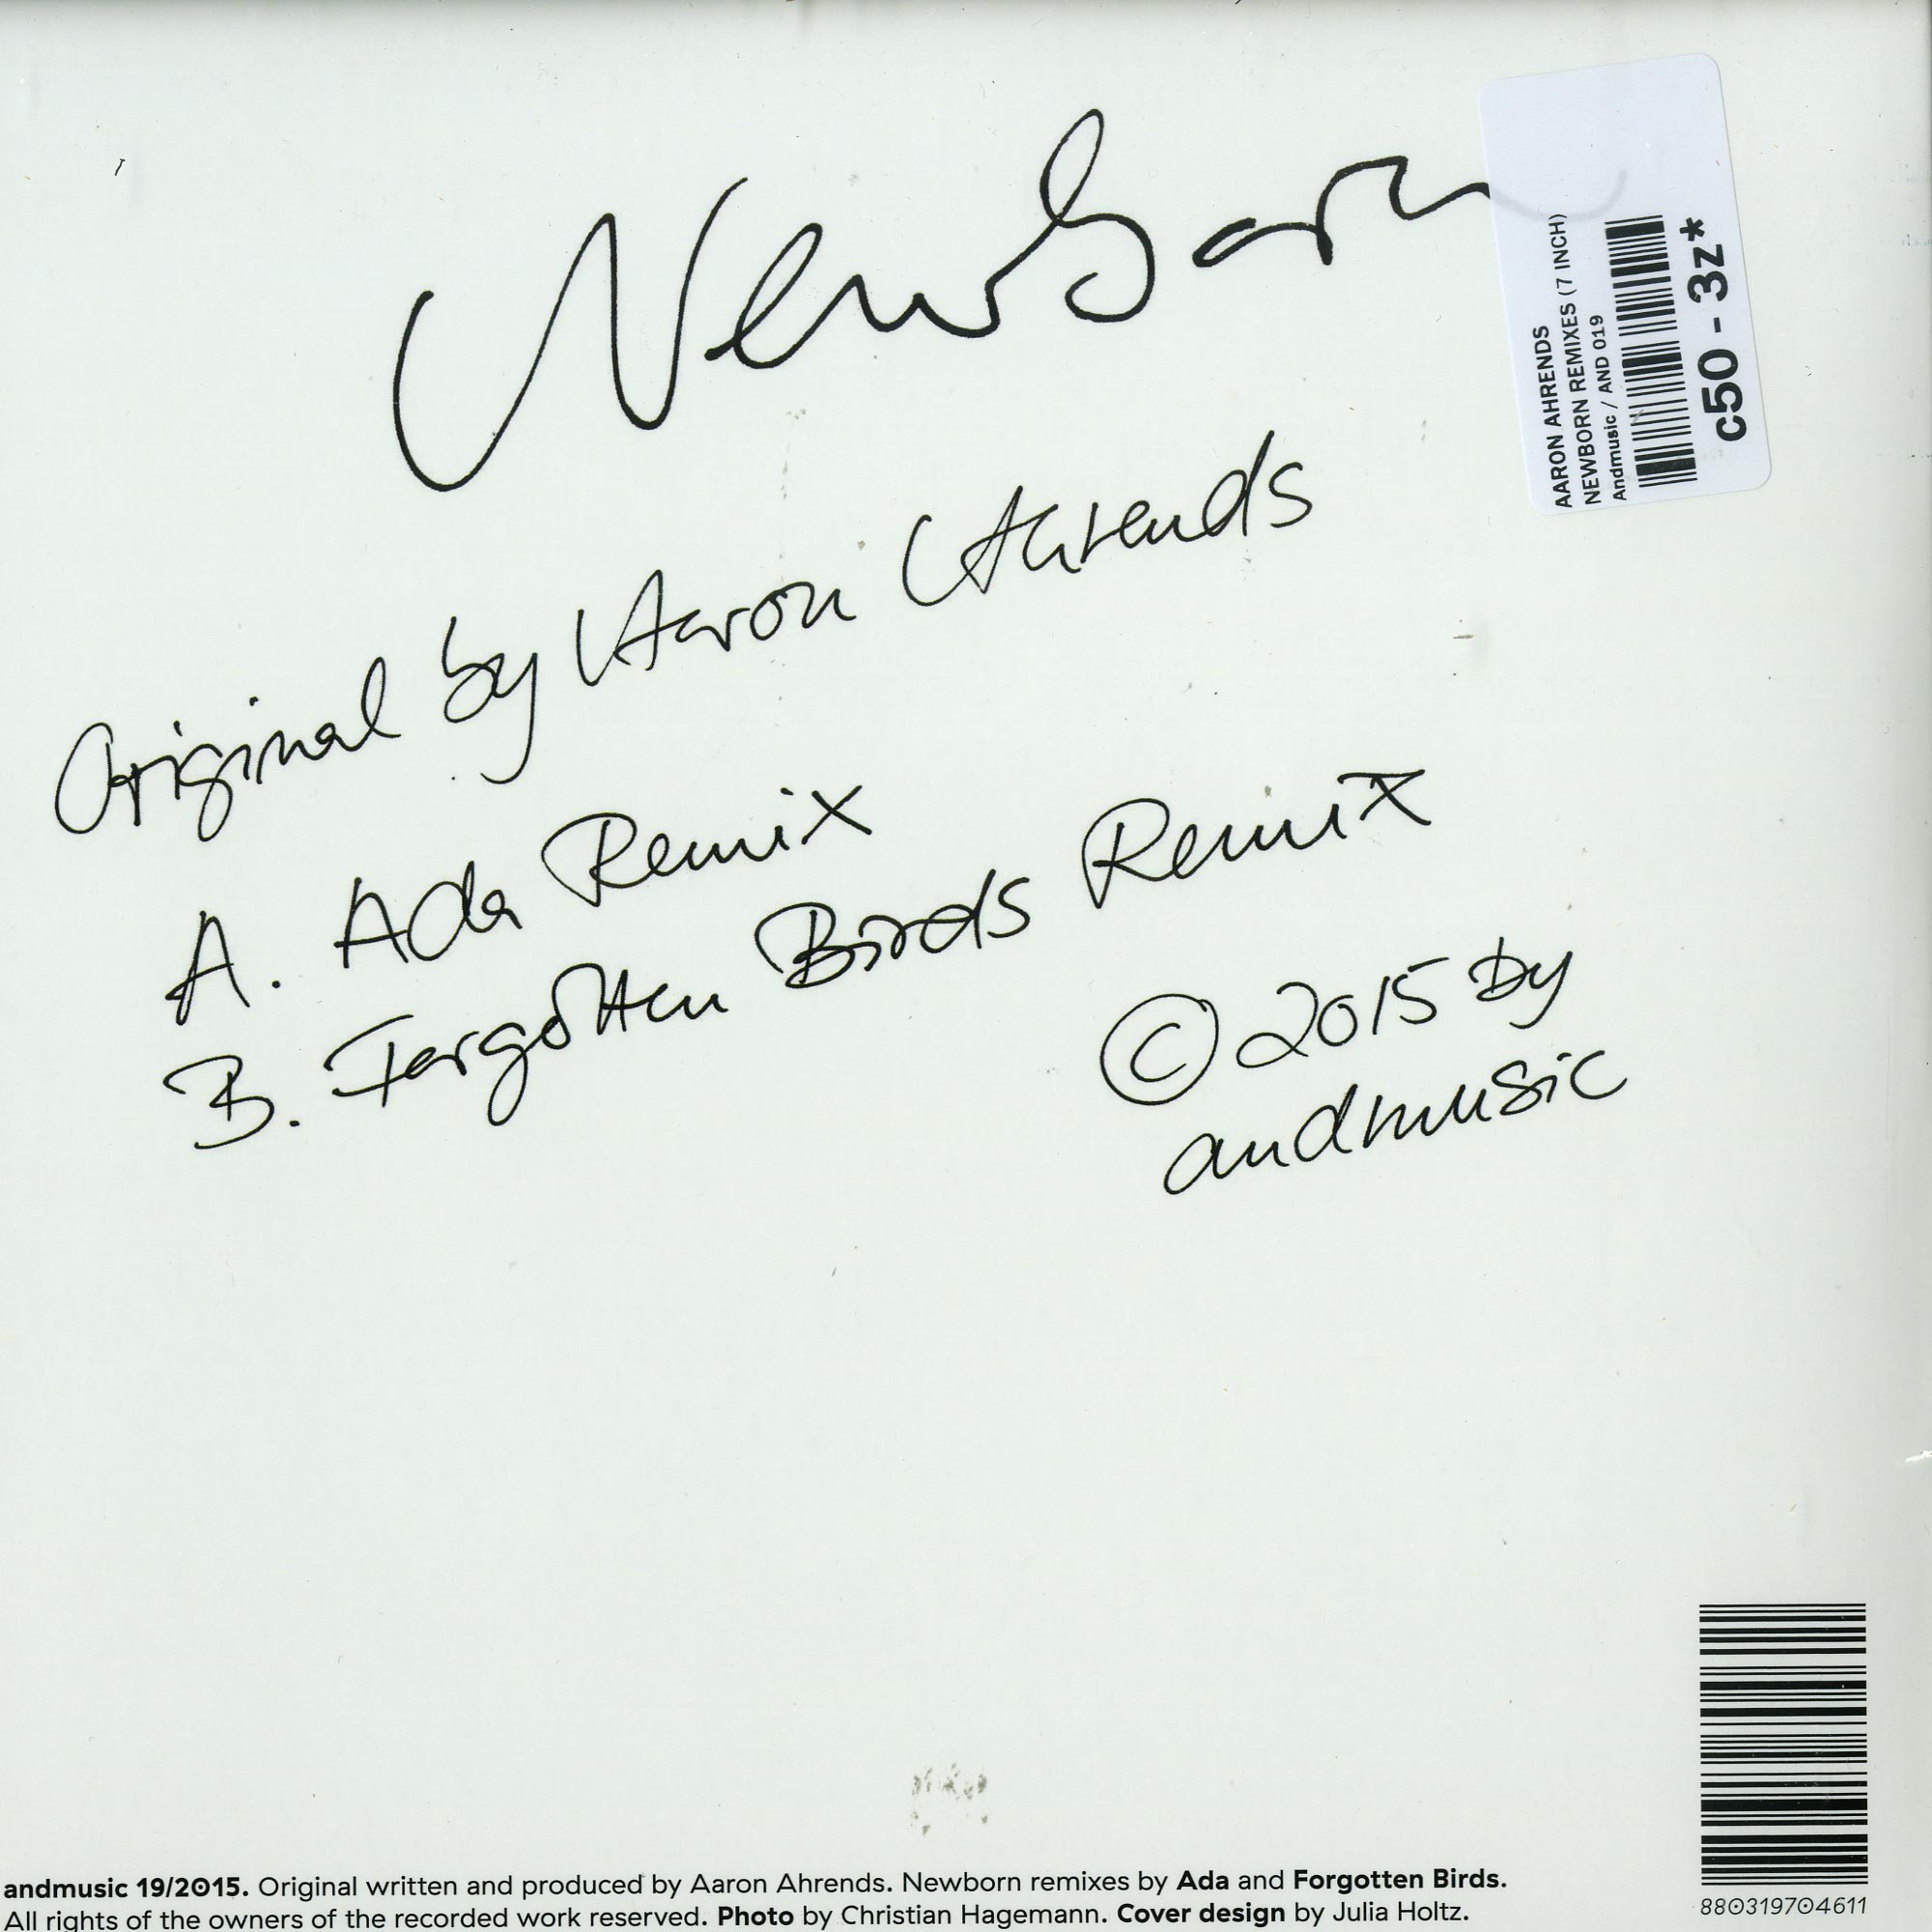 Newborn
Original by Aaron Ahrends
A. Ada Remix
B. Forgotten Birds Remix
© 2015 by
andmusic
AARON AHRENDS
NEWBORN REMIXES (7 INCH)
Andmusic / AND 019
c50 - 3z*
880319704611
andmusic 19/2015. Original written and produced by Aaron Ahrends. Newborn remixes by Ada and Forgotten Birds.
All rights of the owners of the recorded work reserved. Photo by Christian Hagemann. Cover design by Julia Holtz.